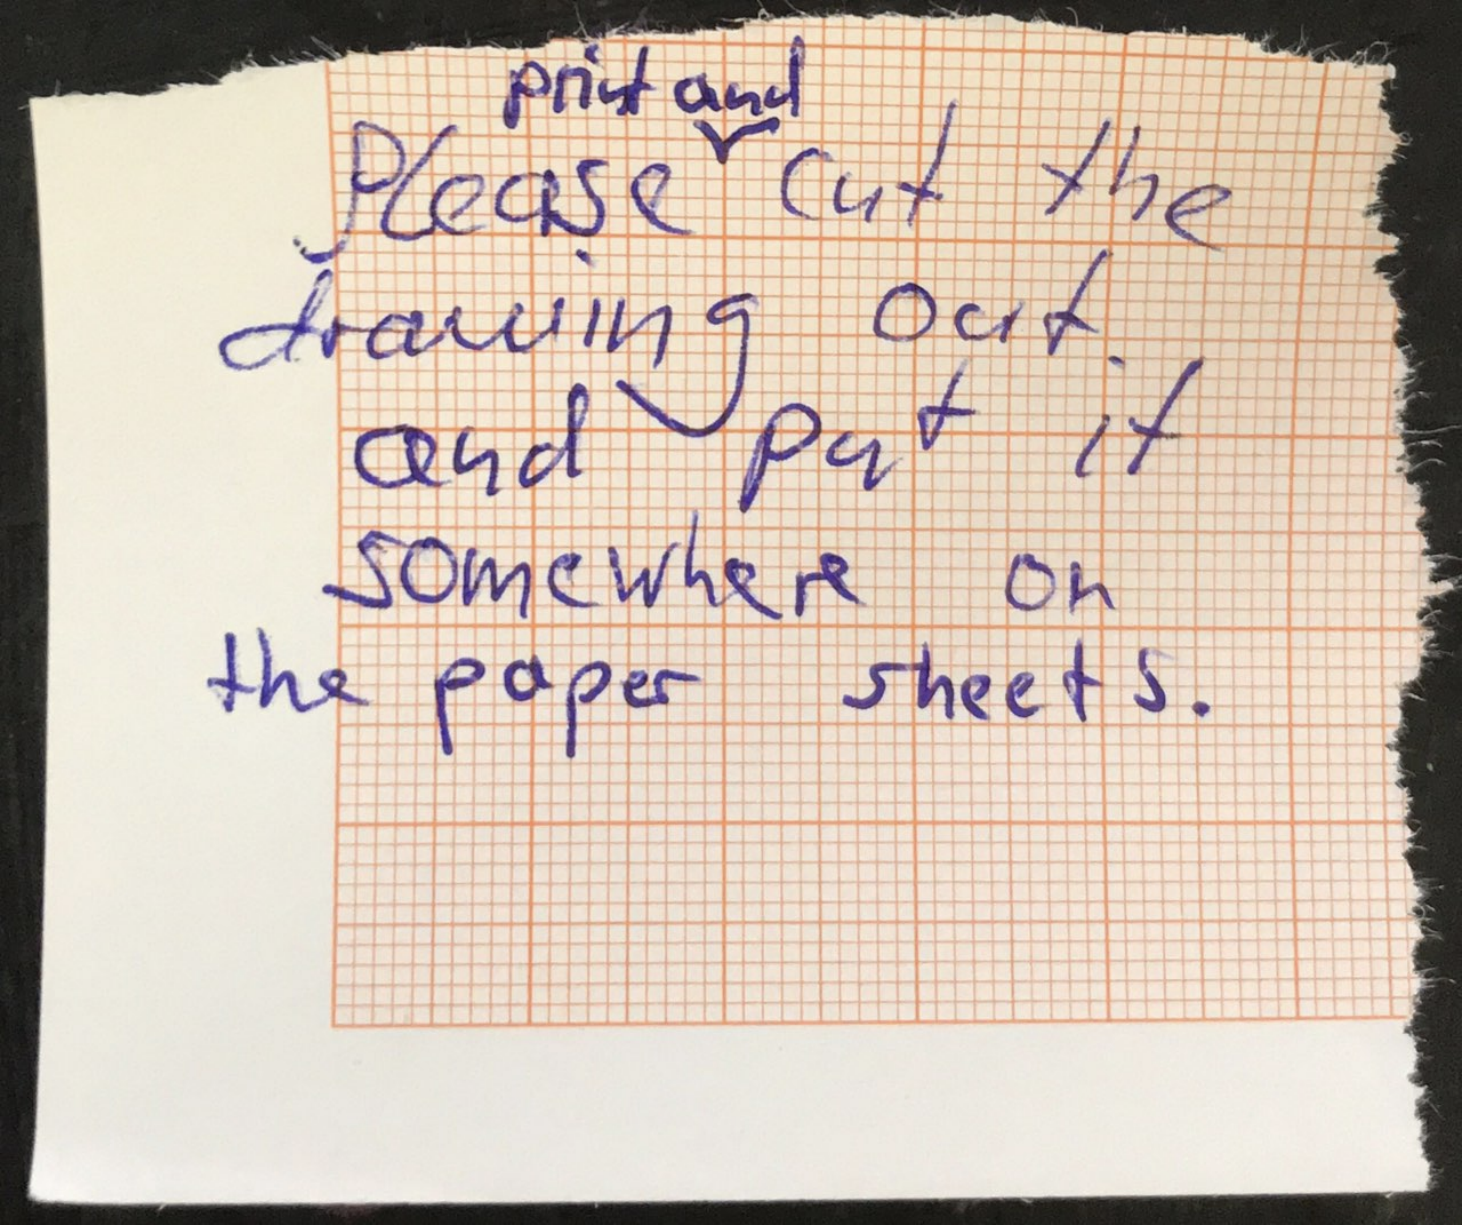 print and
Please cut the
drawing out.
and put it
somewhere on
the paper sheets.